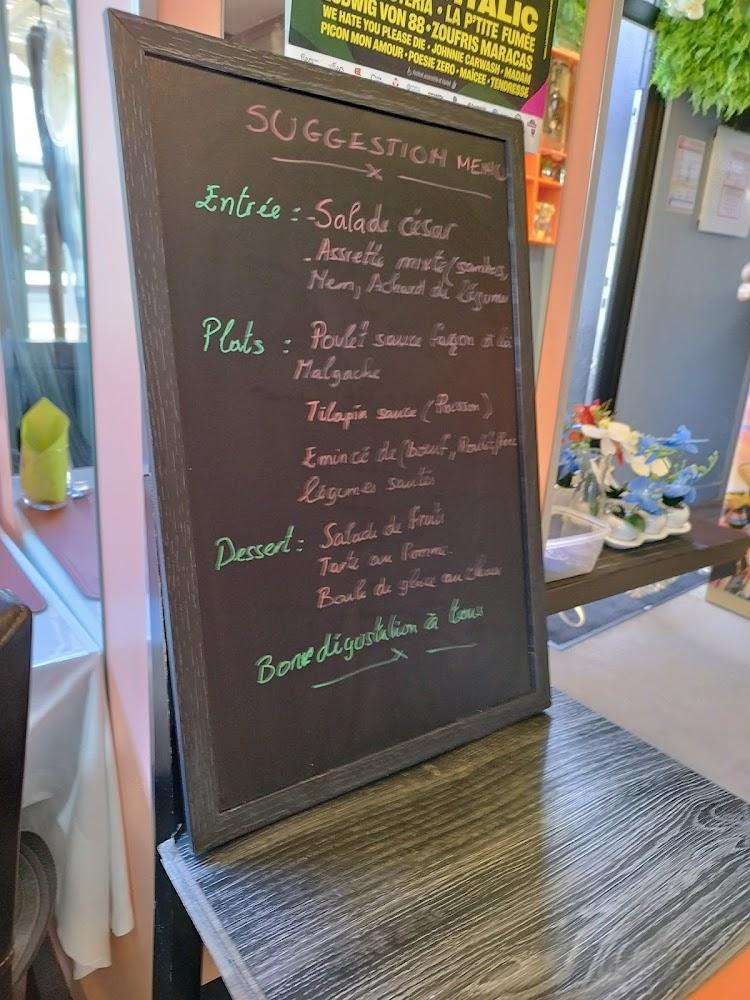 ITALIC
LUDWIG VON 88 • ZOUFRIS MARACAS
WE HATE YOU PLEASE DIE • JOHNNIE CARWASH • MADAM
PICON MON AMOUR • POESIE ZERO • MAÏCEE • TENDRESSE
• LA P'TITE FUMÉE
SUGGESTION MENU
Entrée : - Salade césar
- Assrette mixte (sambos,
Nem, Achard de légumes
Plats : Poulet sauce façon à la
Malgache
Tilapia sauce (Poisson)
Emincé de (bœuf, Poulet, Porc
légumes sautés
Dessert : Salade de fruits
Tarte au Pomme
Boule de glace au choix
Bonne dégustation à tous